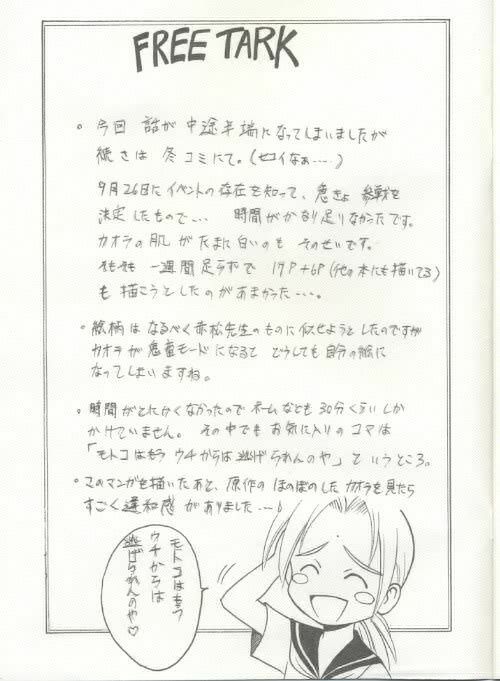 FREE TARK
。今回 話が 中途半端になってしまいましたが
続きは 冬コミにて。(セコイなぁ・・・・)
9月26日にイベントの存在を知って、急きょ 参戦を
決定したもので・・・ 時間がかなり足りなかったです。
カオラの肌がたまに白いのも そのせいです。
そもそも 一週間足らずで 17P+6P(他の本にも描いてる)
も描こうとしたのがあまかった・・・。
。絵柄は なるべく赤松先生のものに似せようとしたのですが
カオラが悪童モードになると どうしても自分の絵に
なってしまいますね。
。時間がとにかくなかったので ネームなども 30分くらいしか
かけていません。 その中でも お気に入りのコマは
「モトコはもう ウチからは 逃げられんのや」というところ。
。このマンガを描いたあと、原作の ほのぼのした カオラを見たら
すごく違和感がありました・・・♪
モトコはもう
ウチからは
逃げられんのや♡